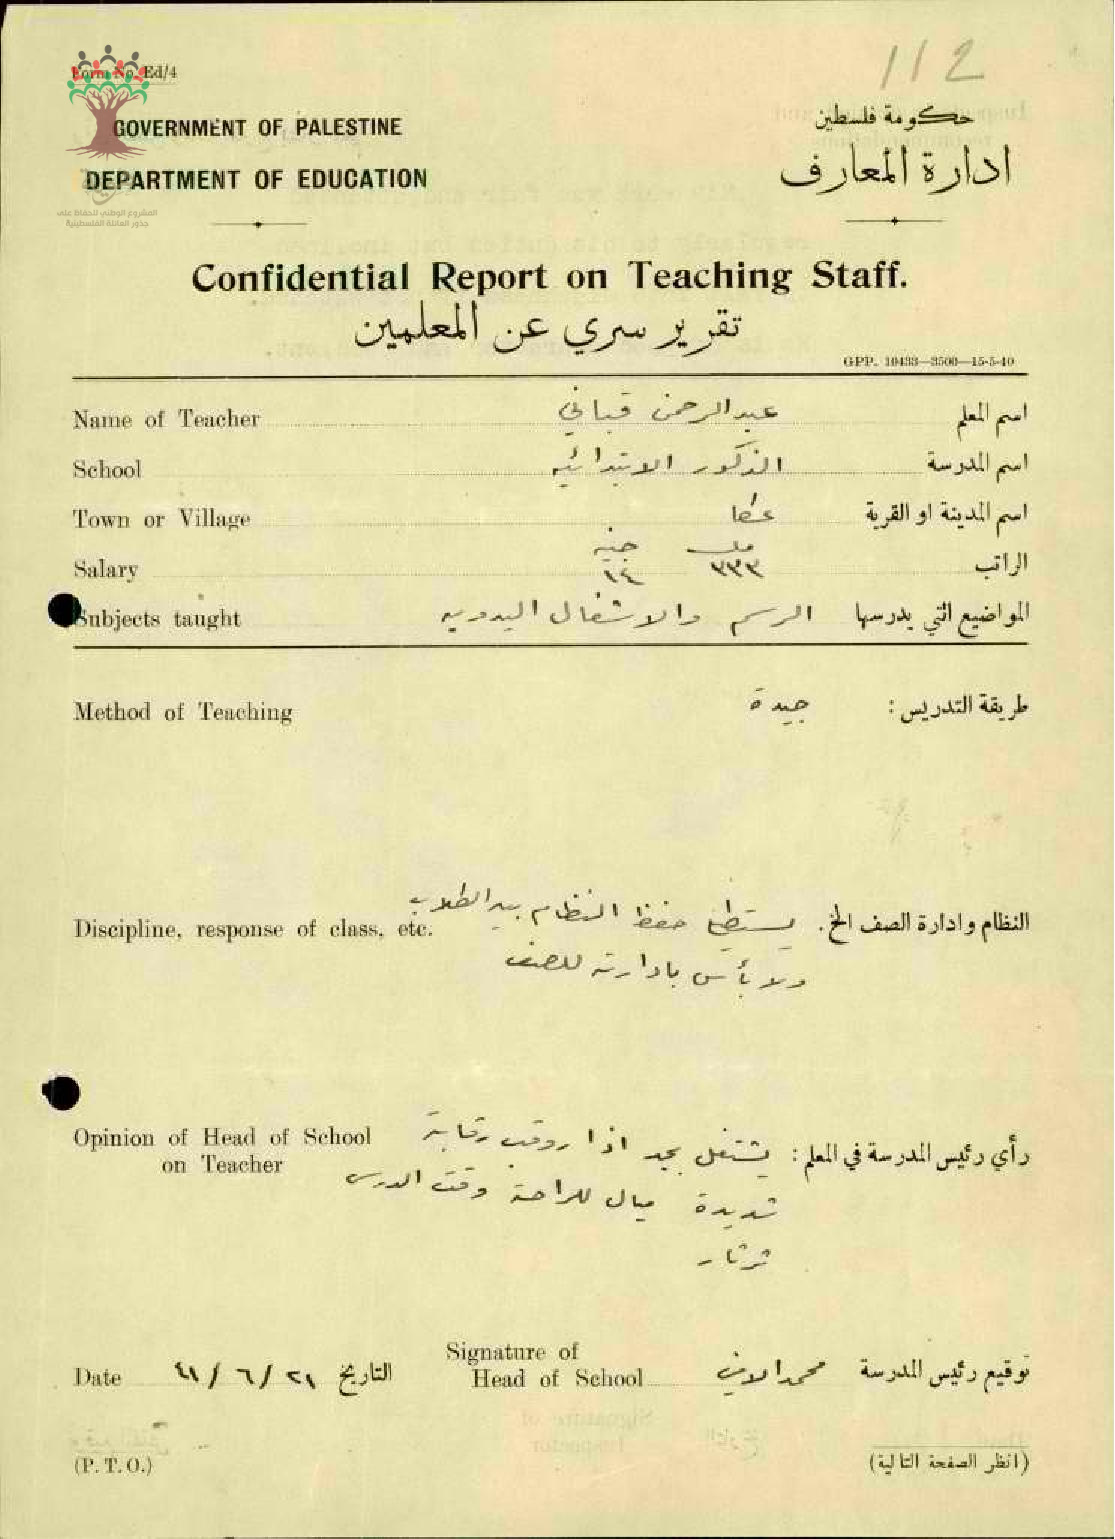 112
Form No. Ed/4
GOVERNMENT OF PALESTINE
حكومة فلسطين
DEPARTMENT OF EDUCATION
ادارة المعارف
المشروع الوطني للحفاظ على
جذور العائلة الفلسطينية
Confidential Report on Teaching Staff.
تقرير سري عن المعلمين
GPP. 10433—3500—15-5-40
Name of Teacher عبدالرحمن قباني اسم المعلم
School الذكور الابتدائيه اسم المدرسة
Town or Village عكا اسم المدينة او القرية
مل جنيه
Salary ٣٣٣ ١٤ الراتب
Subjects taught الرسم والاشغال اليدويه المواضيع التي يدرسها
Method of Teaching جيدة طريقة التدريس :
Discipline, response of class, etc. يستطيع حفظ النظام بين الطلاب النظام وادارة الصف الخ.
ولا بأس بادارته للصف
Opinion of Head of School يشتغل بجد اذا روقب رقابة رأي رئيس المدرسة في المعلم :
on Teacher
شديدة ميال للراحة وقت الدرس
ثرثار
Signature of
Date ٢١/٦/٤١ التاريخ Head of School محمد الامين توقيع رئيس المدرسة
(P. T. O.) (انظر الصفحة التالية)